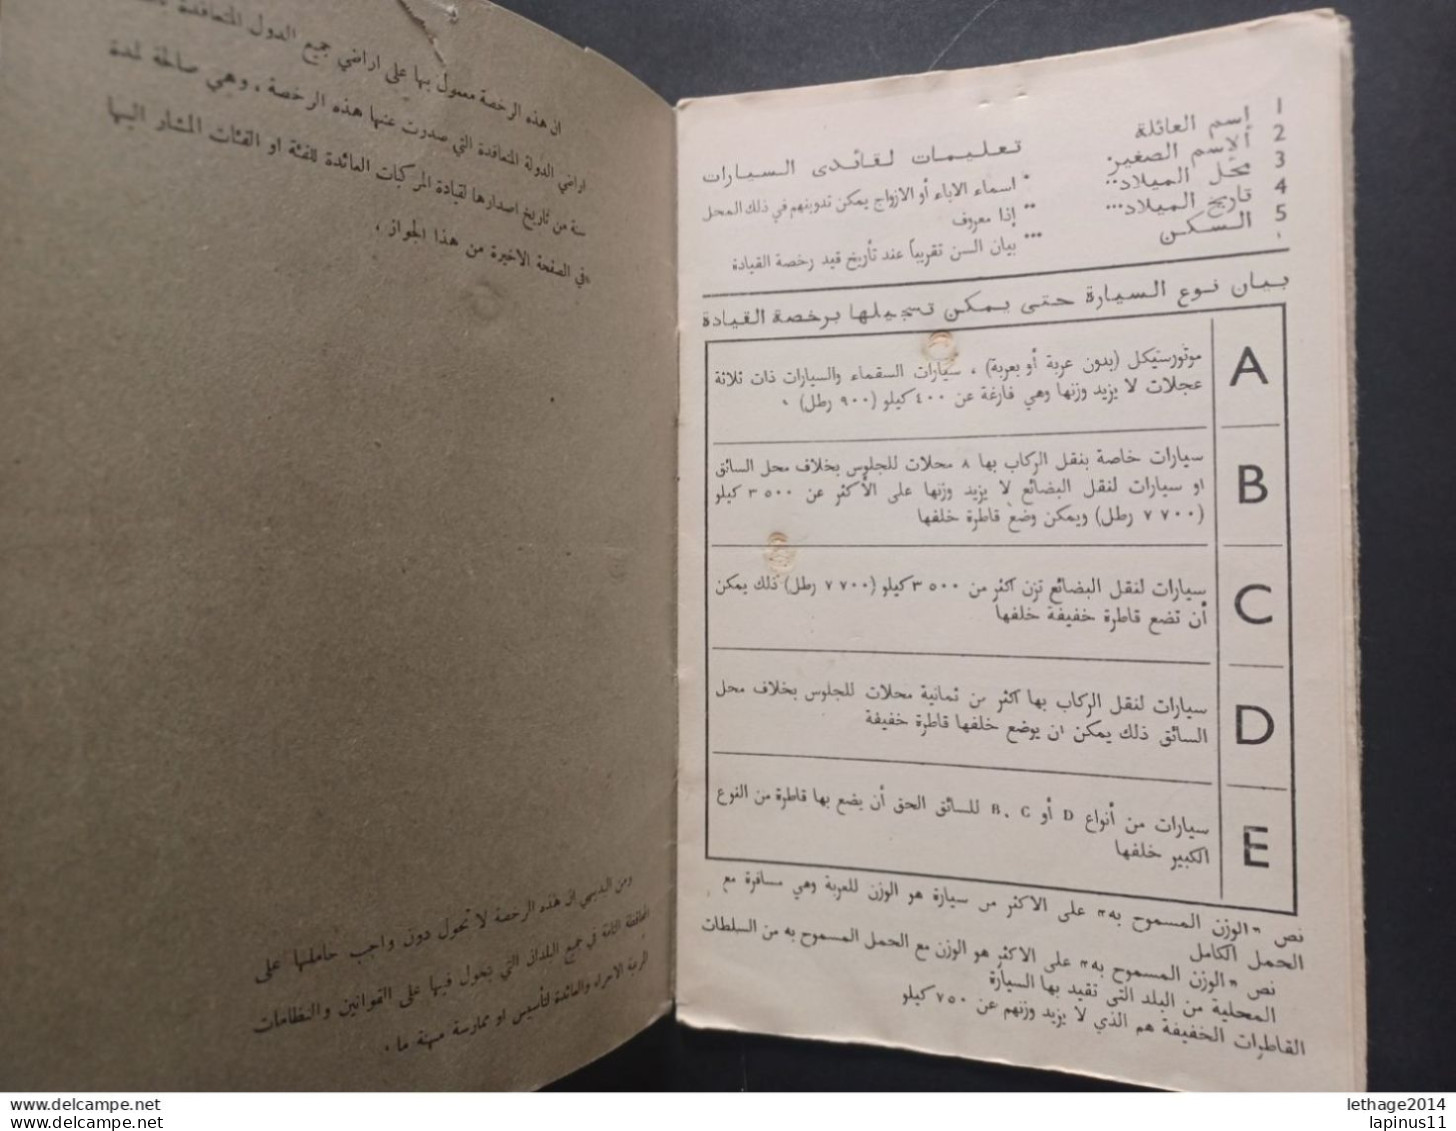 ان هذه الرخصة معمول بها على اراضي جميع الدول المتعاقدة
اراضي الدولة المتعاقدة التي صدرت عنها هذه الرخصة ، وهي صالحة لمدة
سنة من تاريخ اصدارها لقيادة المركبات العائدة للفئة او الفئات المشار اليها
في الصفحة الاخيرة من هذا الجواز .
ومن البديهي ان هذه الرخصة لا تحول دون واجب حاملها على
المحافظة التامة في جميع البلدان التي يتجول فيها على القوانين والنظامات
المرعية الاجراء والعائدة لتأسيس او ممارسة مهنة ما .
1 إسم العائلة
2 الاسم الصغير*
3 محل الميلاد**
4 تاريخ الميلاد***
5 السكن
تعليمات لقائدى السيارات
* اسماء الاباء أو الازواج يمكن تدوينهم في ذلك المحل
** إذا معروف
*** بيان السن تقريباً عند تأريخ قيد رخصة القيادة
بيان نوع السيارة حتى يمكن تسجيلها برخصة القيادة
A
موتورستيكل (بدون عربة أو بعربة) ، سيارات السقماء والسيارات ذات ثلاثة
عجلات لا يزيد وزنها وهي فارغة عن ٤٠٠ كيلو (٩٠٠ رطل)
B
سيارات خاصة بنقل الركاب بها ٨ محلات للجلوس بخلاف محل السائق
او سيارات لنقل البضائع لا يزيد وزنها على الأكثر عن ٣٥٠٠ كيلو
(٧٧٠٠ رطل) ويمكن وضع قاطرة خلفها
C
سيارات لنقل البضائع تزن اكثر من ٣٥٠٠ كيلو (٧٧٠٠ رطل) ذلك يمكن
أن تضع قاطرة خفيفة خلفها
D
سيارات لنقل الركاب بها اكثر من ثمانية محلات للجلوس بخلاف محل
السائق ذلك يمكن ان يوضع خلفها قاطرة خفيفة
E
سيارات من أنواع B، C أو D للسائق الحق أن يضع بها قاطرة من النوع
الكبير خلفها
نص "الوزن المسموح به" على الاكثر من سيارة هو الوزن للعربة وهي مسافرة مع
الحمل الكامل
نص "الوزن المسموح به" على الاكثر هو الوزن مع الحمل المسموح به من السلطات
المحلية من البلد التى تقيد بها السيارة
القاطرات الخفيفة هم الذي لا يزيد وزنهم عن ٧٥٠ كيلو
delcampe.net
delcampe.net
lethage2014
lapinus11